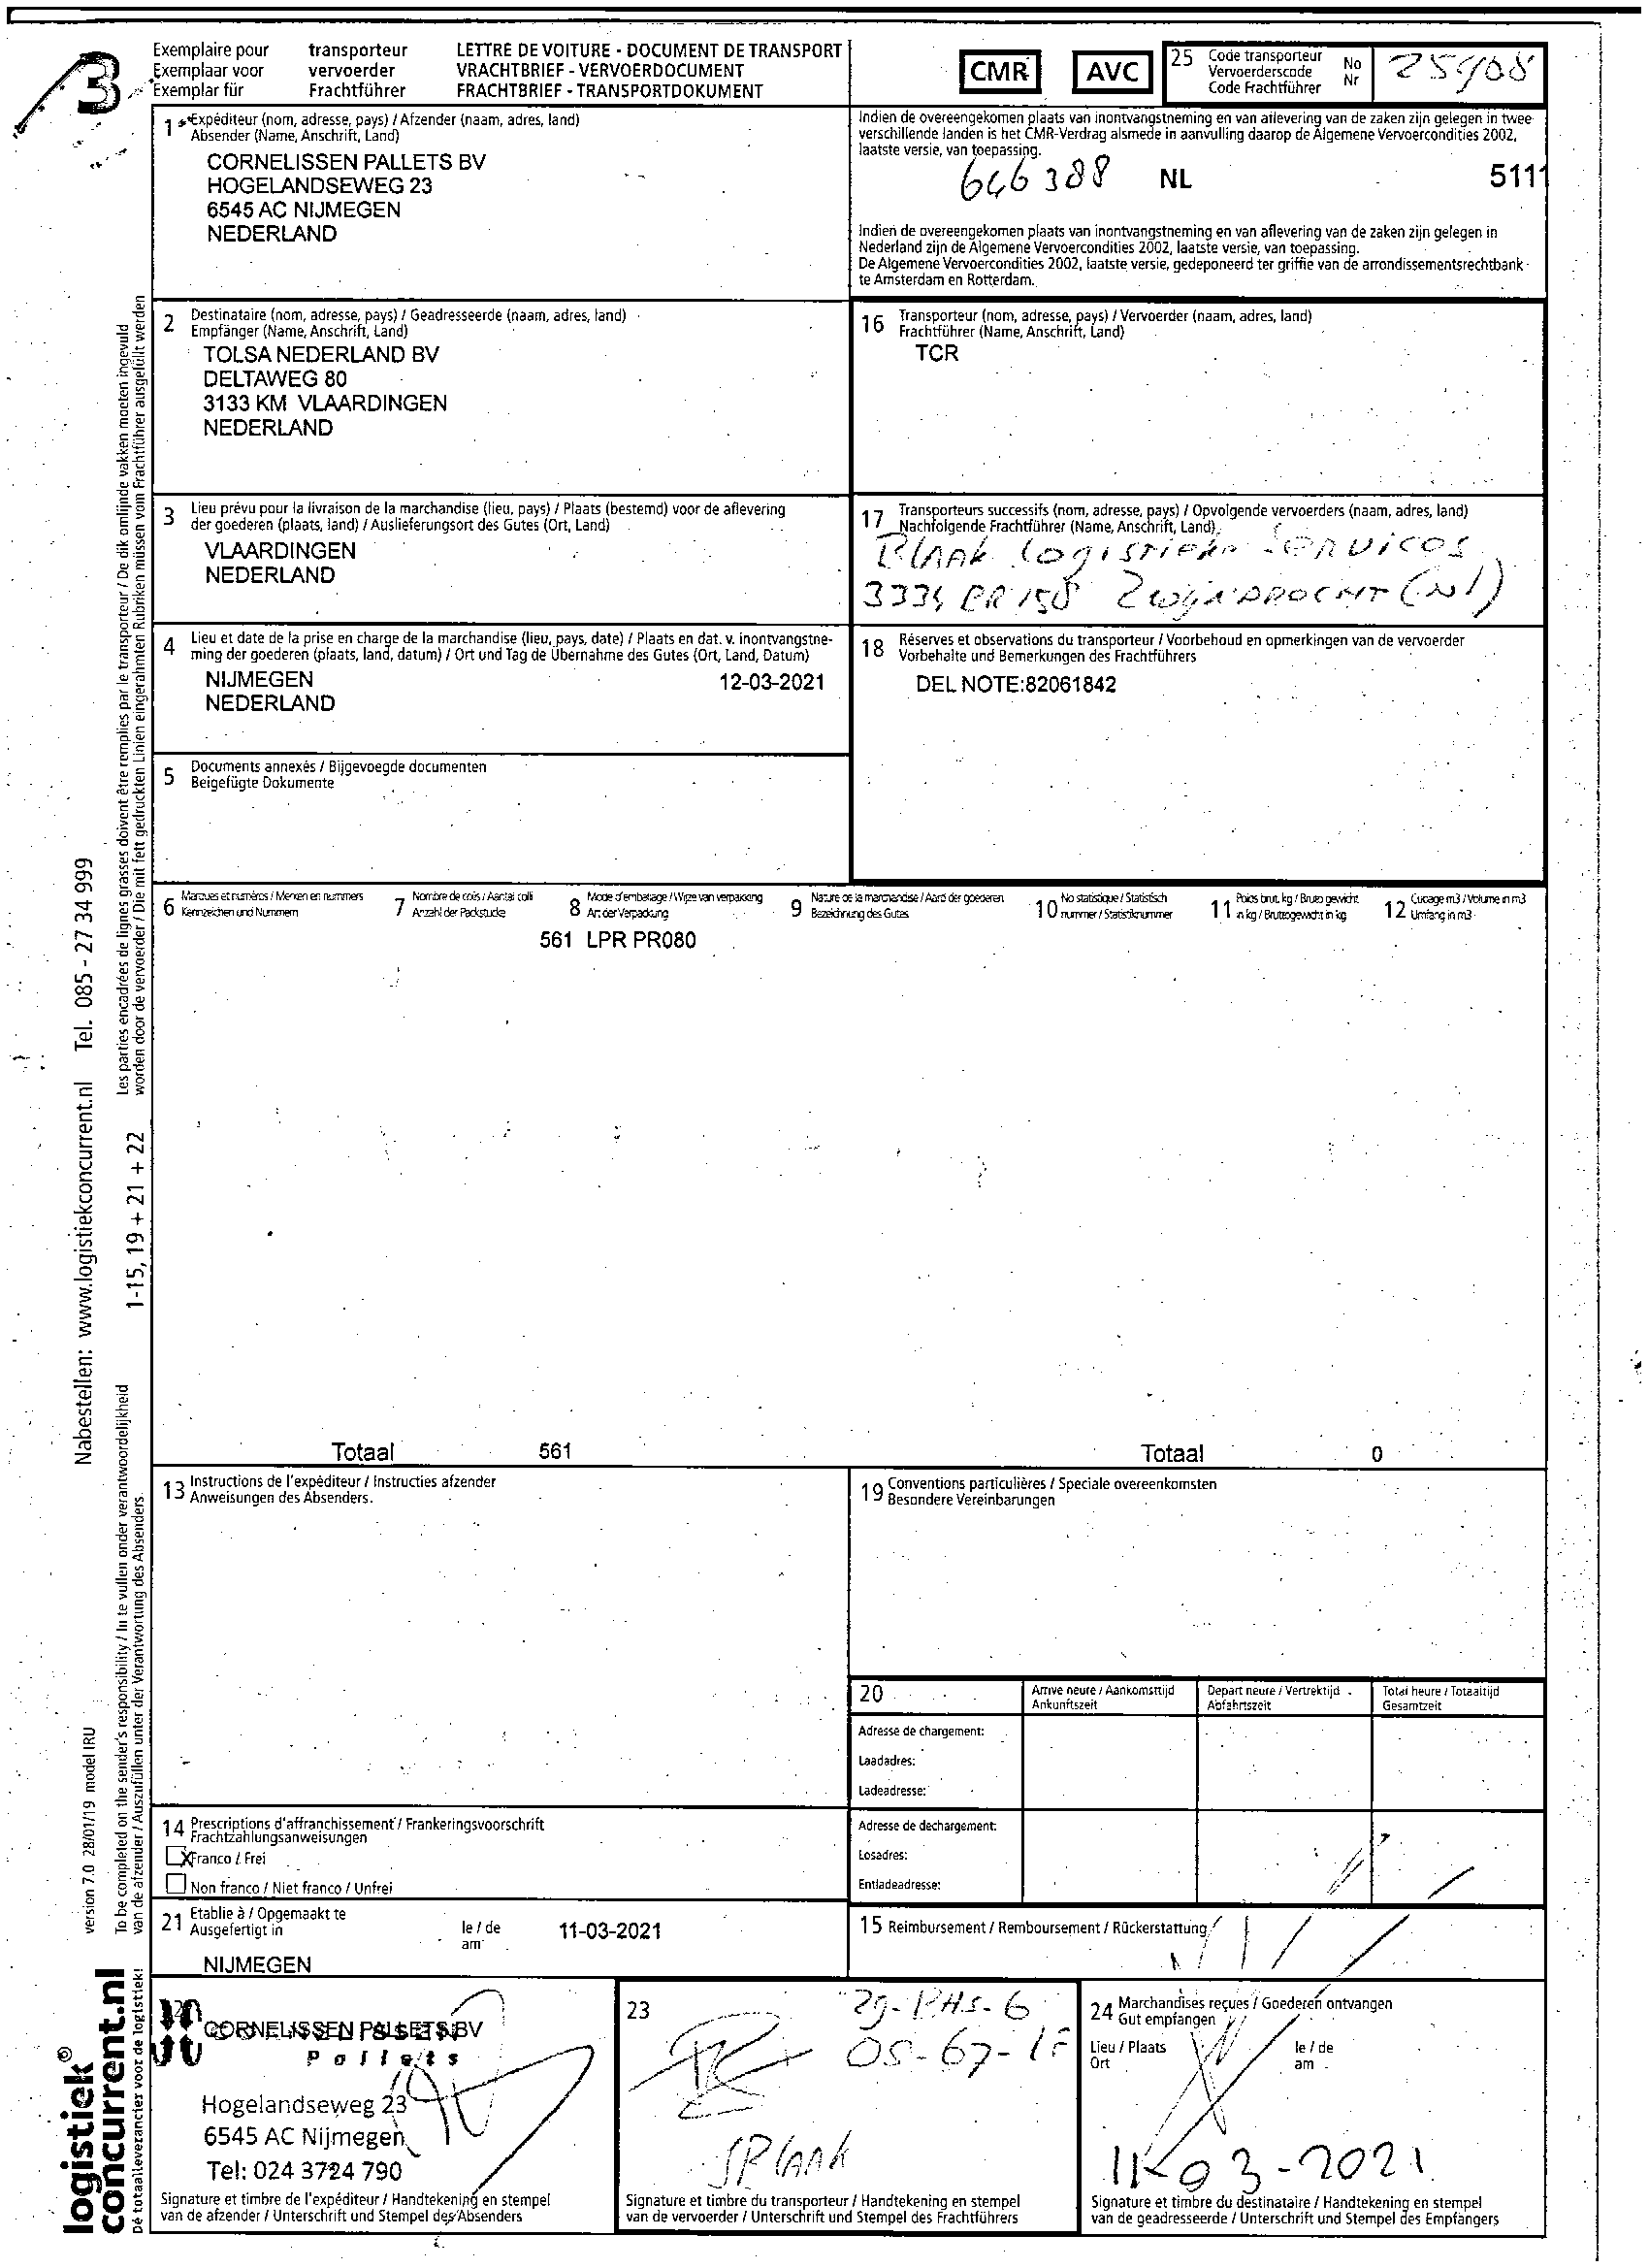 3
Exemplaire pour transporteur
Exemplaar voor vervoerder
Exemplar für Frachtführer
LETTRE DE VOITURE - DOCUMENT DE TRANSPORT
VRACHTBRIEF - VERVOERDOCUMENT
FRACHTBRIEF - TRANSPORTDOKUMENT
CMR AVC
25 Code transporteur No
Vervoerderscode Nr
Code Frachtführer
1 Expéditeur (nom, adresse, pays) / Afzender (naam, adres, land)
Absender (Name, Anschrift, Land)
CORNELISSEN PALLETS BV
HOGELANDSEWEG 23
6545 AC NIJMEGEN
NEDERLAND
Indien de overeengekomen plaats van inontvangstneming en van aflevering van de zaken zijn gelegen in twee
verschillende landen is het CMR-Verdrag alsmede in aanvulling daarop de Algemene Vervoercondities 2002,
laatste versie, van toepassing.
646388 NL 5111
Indien de overeengekomen plaats van inontvangstneming en van aflevering van de zaken zijn gelegen in
Nederland zijn de Algemene Vervoercondities 2002, laatste versie, van toepassing.
De Algemene Vervoercondities 2002, laatste versie, gedeponeerd ter griffie van de arrondissementsrechtbank
te Amsterdam en Rotterdam.
2 Destinataire (nom, adresse, pays) / Geadresseerde (naam, adres, land)
Empfänger (Name, Anschrift, Land)
TOLSA NEDERLAND BV
DELTAWEG 80
3133 KM VLAARDINGEN
NEDERLAND
16 Transporteur (nom, adresse, pays) / Vervoerder (naam, adres, land)
Frachtführer (Name, Anschrift, Land)
TCR
3 Lieu prévu pour la livraison de la marchandise (lieu, pays) / Plaats (bestemd) voor de aflevering
der goederen (plaats, land) / Auslieferungsort des Gutes (Ort, Land)
VLAARDINGEN
NEDERLAND
17 Transporteurs successifs (nom, adresse, pays) / Opvolgende vervoerders (naam, adres, land)
Nachfolgende Frachtführer (Name, Anschrift, Land)
Blaak Logistieke Services
4 Lieu et date de la prise en charge de la marchandise (lieu, pays, date) / Plaats en dat. v. inontvangstne-
ming der goederen (plaats, land, datum) / Ort und Tag de Übernahme des Gutes (Ort, Land, Datum)
NIJMEGEN 12-03-2021
NEDERLAND
18 Réserves et observations du transporteur / Voorbehoud en opmerkingen van de vervoerder
Vorbehalte und Bemerkungen des Frachtführers
DEL NOTE:82061842
5 Documents annexés / Bijgevoegde documenten
Beigefügte Dokumente
6 Marques et numéros / Merken en nummers
Kennzeichen und Nummern
7 Nombre de colis / Aantal colli
Anzahl der Packstücke
8 Mode d'emballage / Wijze van verpakking
Art der Verpackung
9 Nature de la marchandise / Aard der goederen
Bezeichnung des Gutes
10 No statistique / Statistisch
nummer / Statistiknummer
11 Poids brut, kg / Bruto gewicht
in kg / Bruttogewicht in kg
12 Cubage m3 / Volume in m3
Umfang in m3
561 LPR PR080
Totaal 561 Totaal 0
13 Instructions de l'expéditeur / Instructies afzender
Anweisungen des Absenders.
19 Conventions particulières / Speciale overeenkomsten
Besondere Vereinbarungen
20 Arrive heure / Aankomsttijd
Ankunftszeit
Depart heure / Vertrektijd
Abfahrtszeit
Total heure / Totaaltijd
Gesamtzeit
Adresse de chargement:
Laadadres:
Ladeadresse:
Adresse de dechargement:
Losadres:
Entladeadresse:
14 Prescriptions d'affranchissement / Frankeringsvoorschrift
Frachtzahlungsanweisungen
X Franco / Frei
Non franco / Niet franco / Unfrei
21 Etablie à / Opgemaakt te
Ausgefertigt in
le / de
am
11-03-2021
NIJMEGEN
15 Reimbursement / Remboursement / Rückerstattung
22
CORNELISSEN PALLETS BV
Pallets
Hogelandseweg 23
6545 AC Nijmegen
Tel: 024 3724 790
Signature et timbre de l'expéditeur / Handtekening en stempel
van de afzender / Unterschrift und Stempel des Absenders
23
Signature et timbre du transporteur / Handtekening en stempel
van de vervoerder / Unterschrift und Stempel des Frachtführers
24 Marchandises reçues / Goederen ontvangen
Gut empfangen
Lieu / Plaats
Ort
le / de
am
03-2021
Signature et timbre du destinataire / Handtekening en stempel
van de geadresseerde / Unterschrift und Stempel des Empfängers
Les parties encadrées de lignes grasses doivent être remplies par le transporteur / De dik omlijnde vakken moeten ingevuld
worden door de vervoerder / Die mit fett gedruckten Linien eingerahmten Rubriken müssen vom Frachtführer ausgefüllt werden
1-15, 19 + 21 + 22
To be completed on the sender's responsibility / In te vullen onder verantwoordelijkheid
van de afzender / Auszufüllen unter der Verantwortung des Absenders
Nabestellen: www.logistiekconcurrent.nl Tel. 085 - 27 34 999
version 7.0 28/01/19 model IRU
logistiek®
concurrent.nl
Dé totaalleverancier voor de logistiek!